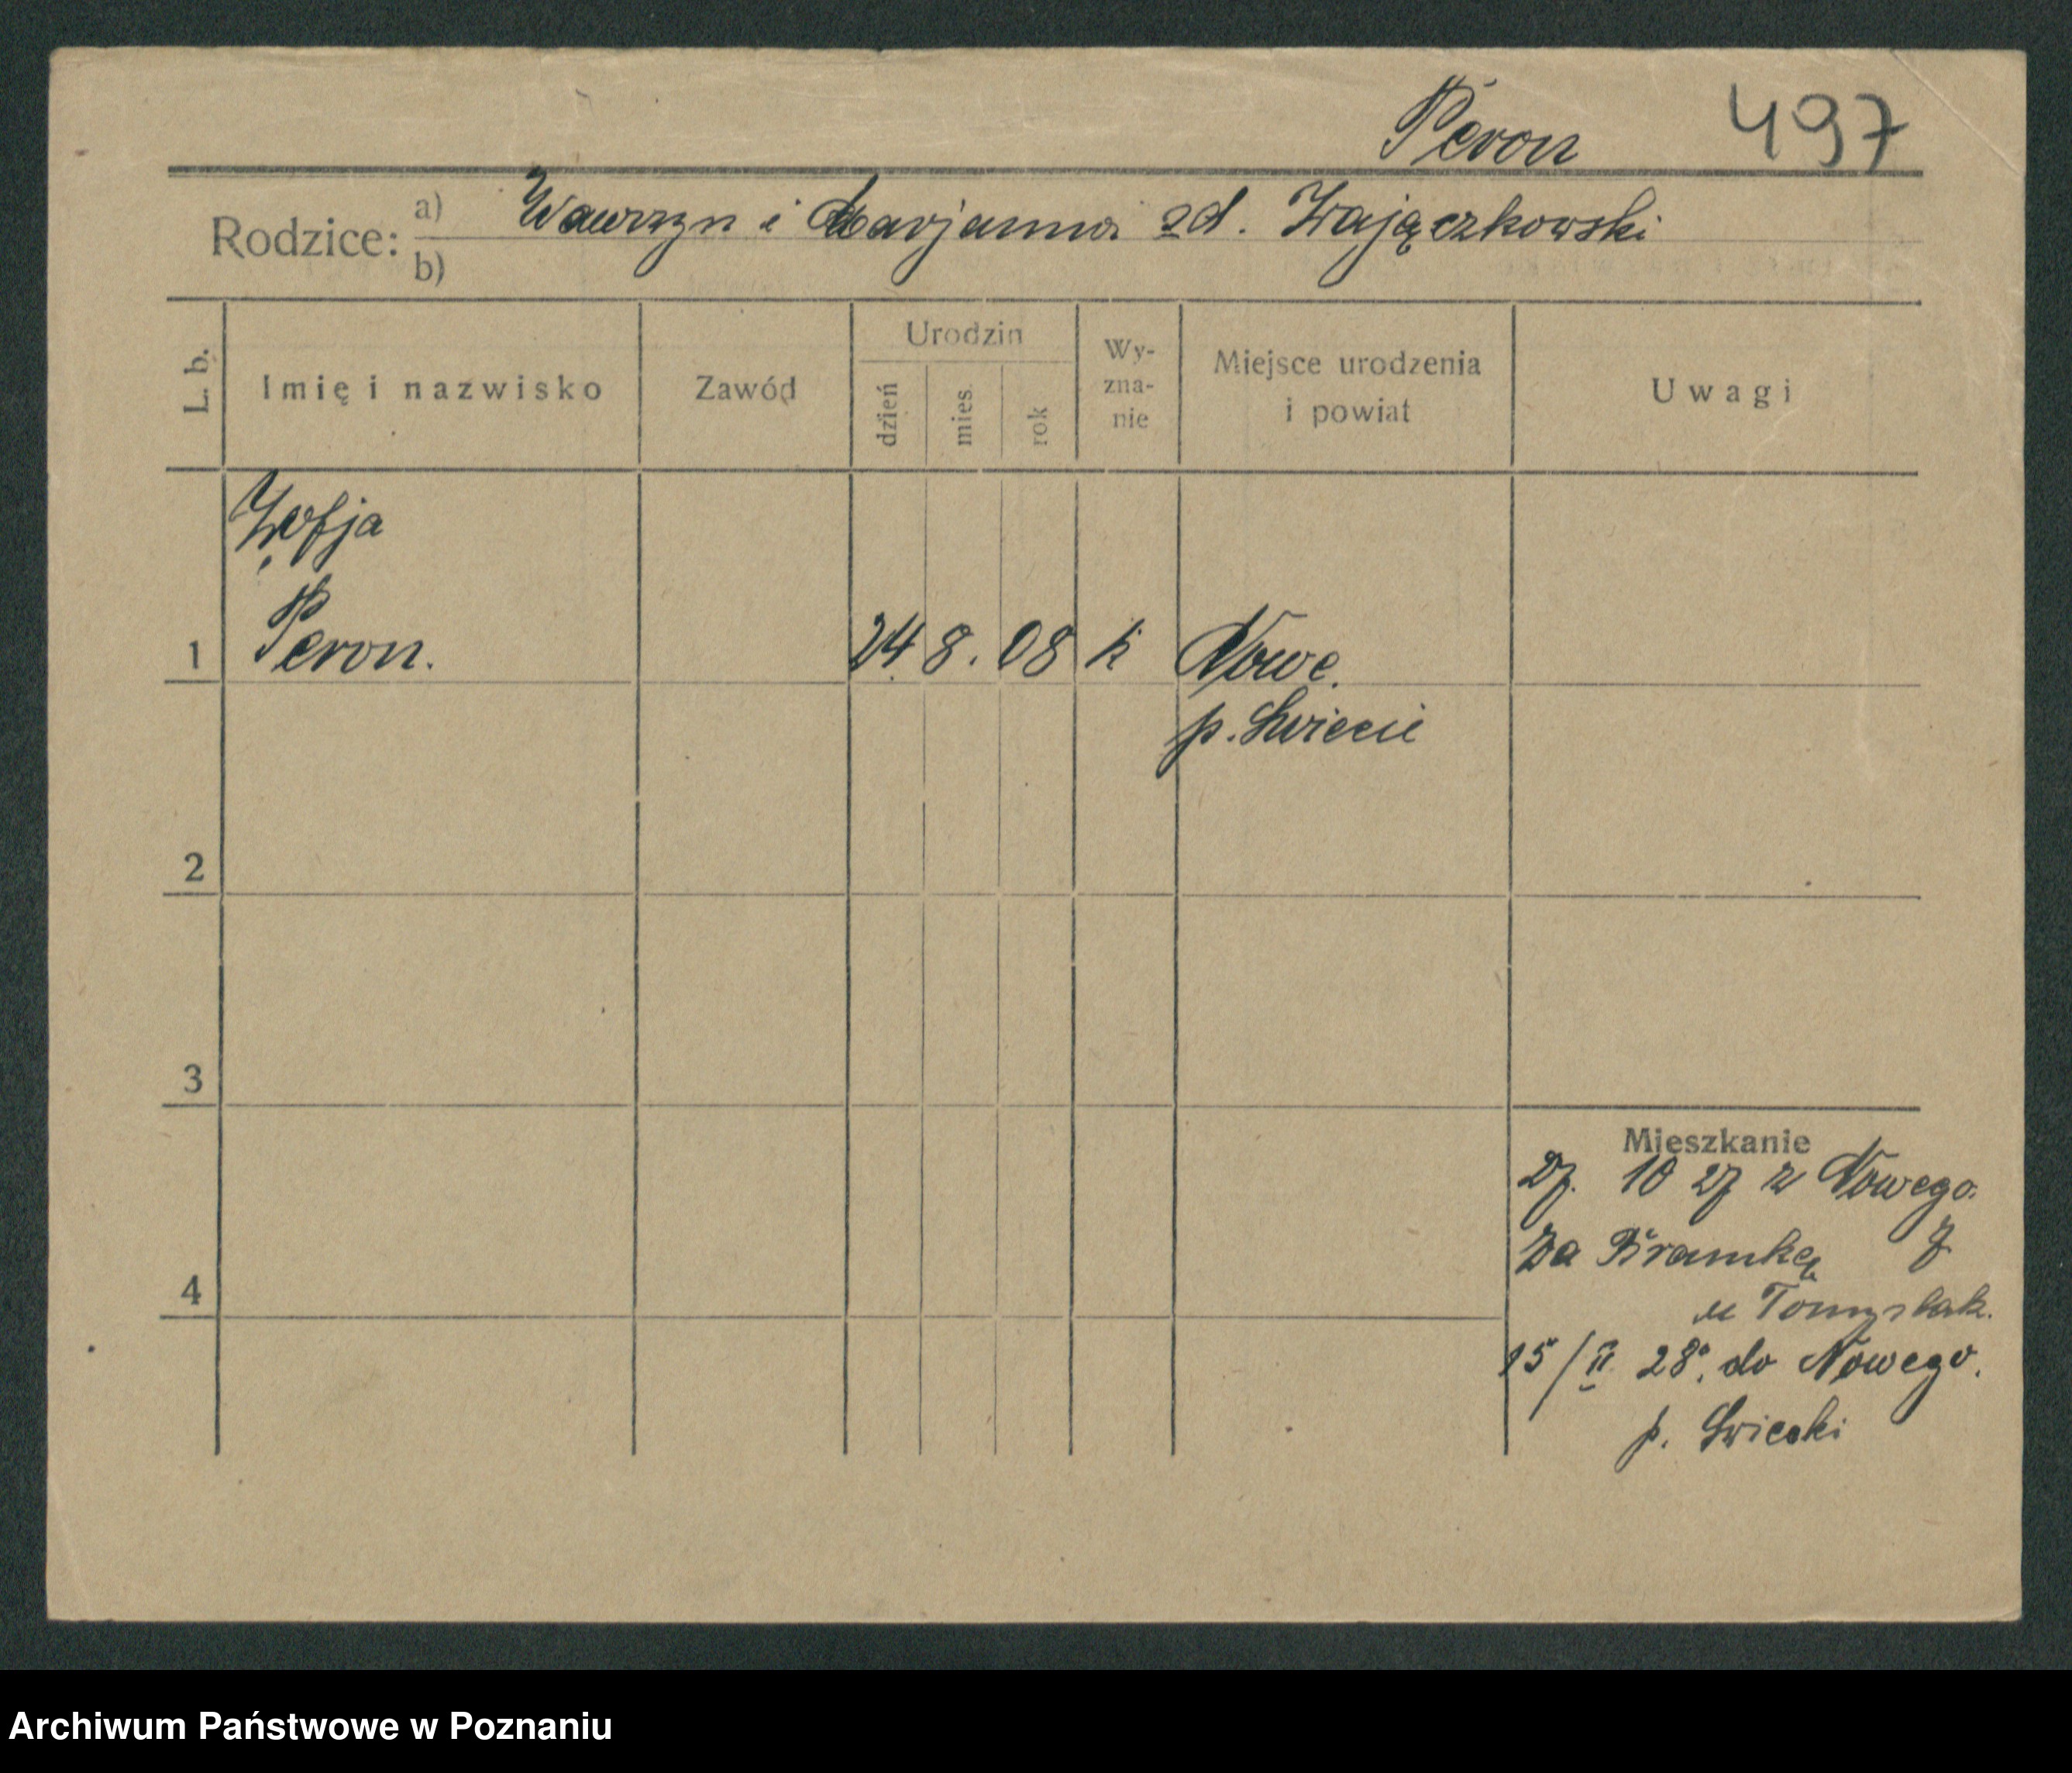 Peron 497
Rodzice: a) Wawrzyn i Marjanna zd. Zajączkowski
b)
L. b.
Imię i nazwisko
Zawód
Urodzin
dzień
mies.
rok
Wy-
zna-
nie
Miejsce urodzenia
i powiat
Uwagi
Zofja
1 Peron. 24 8. 08 k Nowe.
p. Swiecie
2
3
Mieszkanie
27. 10 27 z Nowego.
Za Bramką 7
4
u Tomyslak.
15/II 28. do Nowego.
p. Swiecki
Archiwum Państwowe w Poznaniu